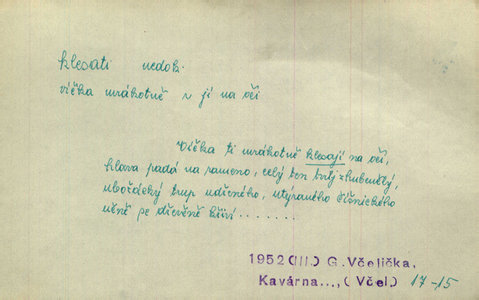 klesati nedok.
víčka mrákotně v jí na oči
Víčka ti mrákotně klesají na oči,
hlava padá na rameno, celý ten tvůj zhubenělý,
ubožácký trup udřeného, utýraného číšnického
učně se dřevěně kříví.......
1952 (III.) G. Včelička,
Kavárna..., (Včel) 17-15